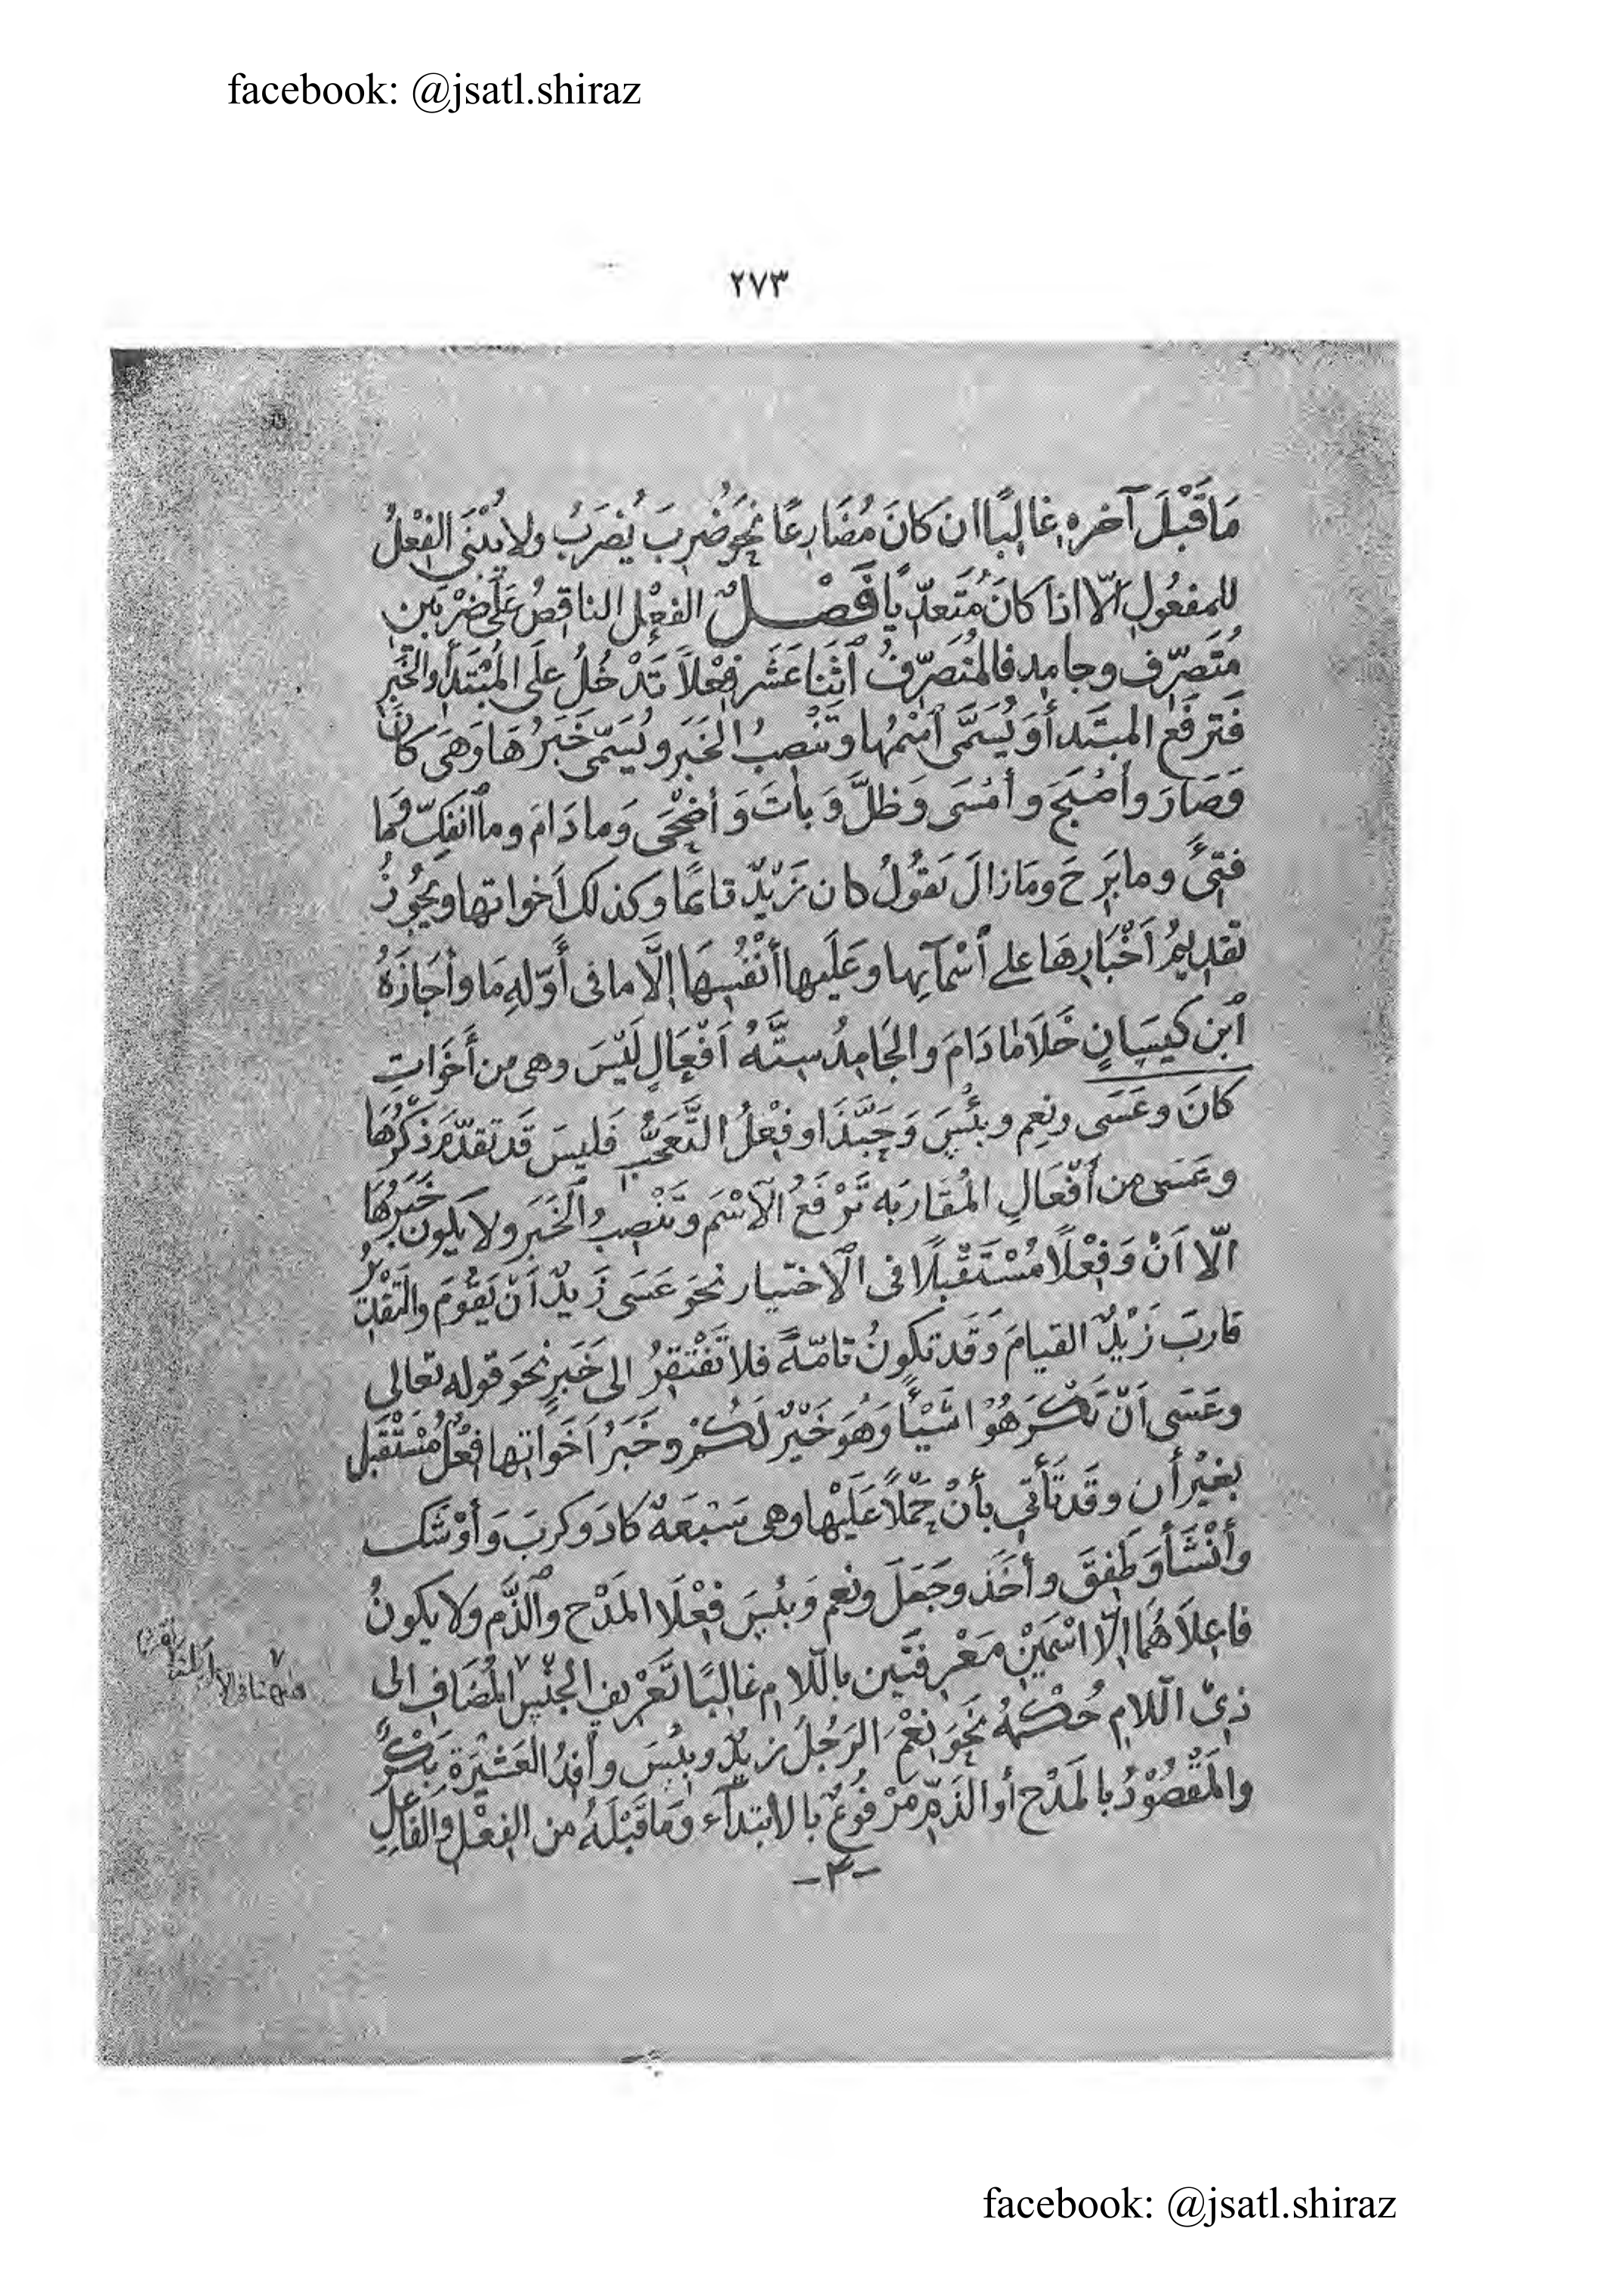 facebook: @jsatl.shiraz
٢٧٣
مَا قَبْلَ آخره غالِبًا ان كانَ مُضَارِعًا نحوَ ضُرِبَ يُضرَبُ ولا يُبْنَى الفِعْلُ
للمفعُولِ الّا اذا كانَ مُتَعدّيًا فَصْلٌ الفعْل الناقِصُ عَلَى ضَرْبَين
مُتَصَرّف وجامِد فالمُتَصَرّفُ ٱثنَا عَشَر فِعْلاً تَدْخُلُ علَى المُبْتَدَأ والخَبَرِ
فَتَرفَع المبتَدأ وَيُسَمَّى ٱسْمُها وتَنْصِبُ الخَبَر ويُسَمّى خَبَرُهَا وَهىَ كانَ
وَصَارَ وأَصْبَحَ وأَمْسَى وَظلَّ وَبَاتَ وَأضْحَى وَما دَامَ وما ٱنفَكّ وَما
فتِئَ وما بَرِحَ ومَا زالَ تقولُ كان زَيْدٌ قائمًا وكذلك أَخواتها ويجُوزُ
تقدِيمُ أَخْبَارِهَا على ٱسْمَآئِها وعَلَيها أَنْفُسِهَا إلَّا ما فى أَوّلهِ مَا وأَجَازَهُ
ٱبن كَيسَانٍ خَلَا مادَامَ والجَامِدُ سِتَّةُ أَفعَالٍ لَيْسَ وهى من أَخَوَاتِ
كانَ وعَسَى ونِعِم وبئْسَ وَحَبَّذَا وفِعْلُ التَّعَجُّب فَليسَ قَد تقدّمَ ذِكْرُهَا
وعَسَى من أَفْعَالِ المُقَارَبَه تَرْفَعُ الٱسْمَ وتَنْصِبُ الخَبَر ولا يكون خَبَرُهَا
الّا اَنْ وَفِعْلًا مُسْتَقْبلًا فى الٱختيار نحوَ عَسَى زَيدٌ اَنْ يَقُومَ والتَقْدِيرُ
قاربَ زَيْدٌ القيامَ وَقَد تكونُ تامّةً فلا تَفْتَقِرُ الى خَبَرٍ نحوَ قوله تعالى
وعَسَى اَنْ تَكْرَهُوْا شَيْئًا وَهُوَ خَيْرٌ لَكُمْ وخَبَرُ اَخَوَاتِها فِعْلٌ مُسْتَقْبَل
بغيْرِ أن وقَد تَأتي بأَنْ حَمْلًا عَلَيْها وهى سَبْعَة كادَ وكرَبَ وَأوْشَك
وأَنْشَأَ وَطَفِقَ وأخَذ وجَعَلَ ونعِم وَبئسَ فِعْلَا المَدْح والذَّم ولا يكونُ
فاعِلَاهُمَا إلّا اسْمَيْنِ مَعْرِفتَين باللام غالبًا تَعْرِيف الجنْس المُضَاف الى
ذِىْ اللّام حُكْمهُ نحوَ نِعْمَ الرَجُل زيدٌ وبئسَ وافِدُ العَشيْرَة بَكْر
والمَقْصُوْدُ بالمَدْح أو الذَمّ مَرْفُوعٌ بالابتدآء وَمَا قَبْلَهُ من الفِعْل والفَاعِلِ
-٣-
facebook: @jsatl.shiraz